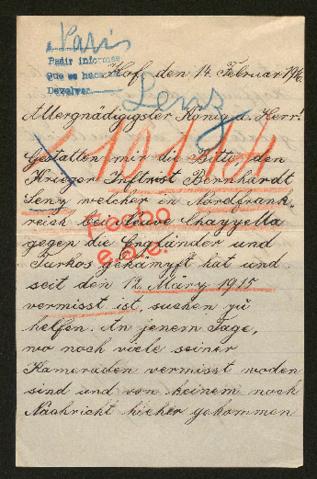 Paris
Pedir informes
que se hace
Devolver
Hof, den 14. Februar 1916.
Lenz
Allergnädigigster König u. Herr!
Gestatten mir die Bitte, den
Krieger Inftrist Bernhardt
Lenz, welcher in Nordfrank
reich bei Neuve Chappella
gegen die Engländer und
Turkos gekämpft hat und
seit den 12. März 1915
vermisst ist, suchen zu
helfen. An jenem Tage,
wo noch viele seiner
Kameraden vermisst woden
sind und von keinem noch
Nachricht hieher gekommen